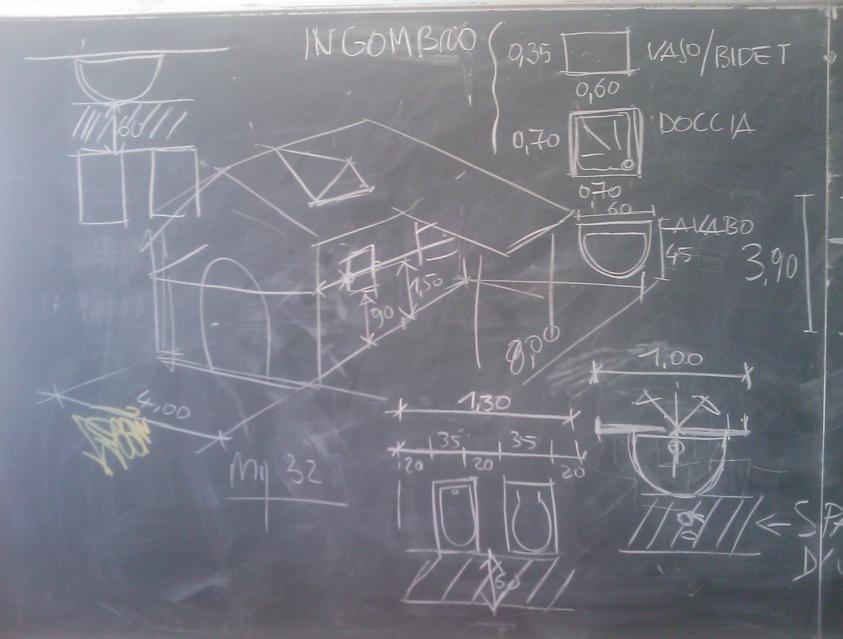 INGOMBRO
0,35 VASO/BIDET
0,60
0,70 DOCCIA
0,70
60
LAVABO
45
3,90
60
1,50
90
8,00
4,00
1,00
1,30
35 35
20 20 20
Mq 32
60
60
← SPA